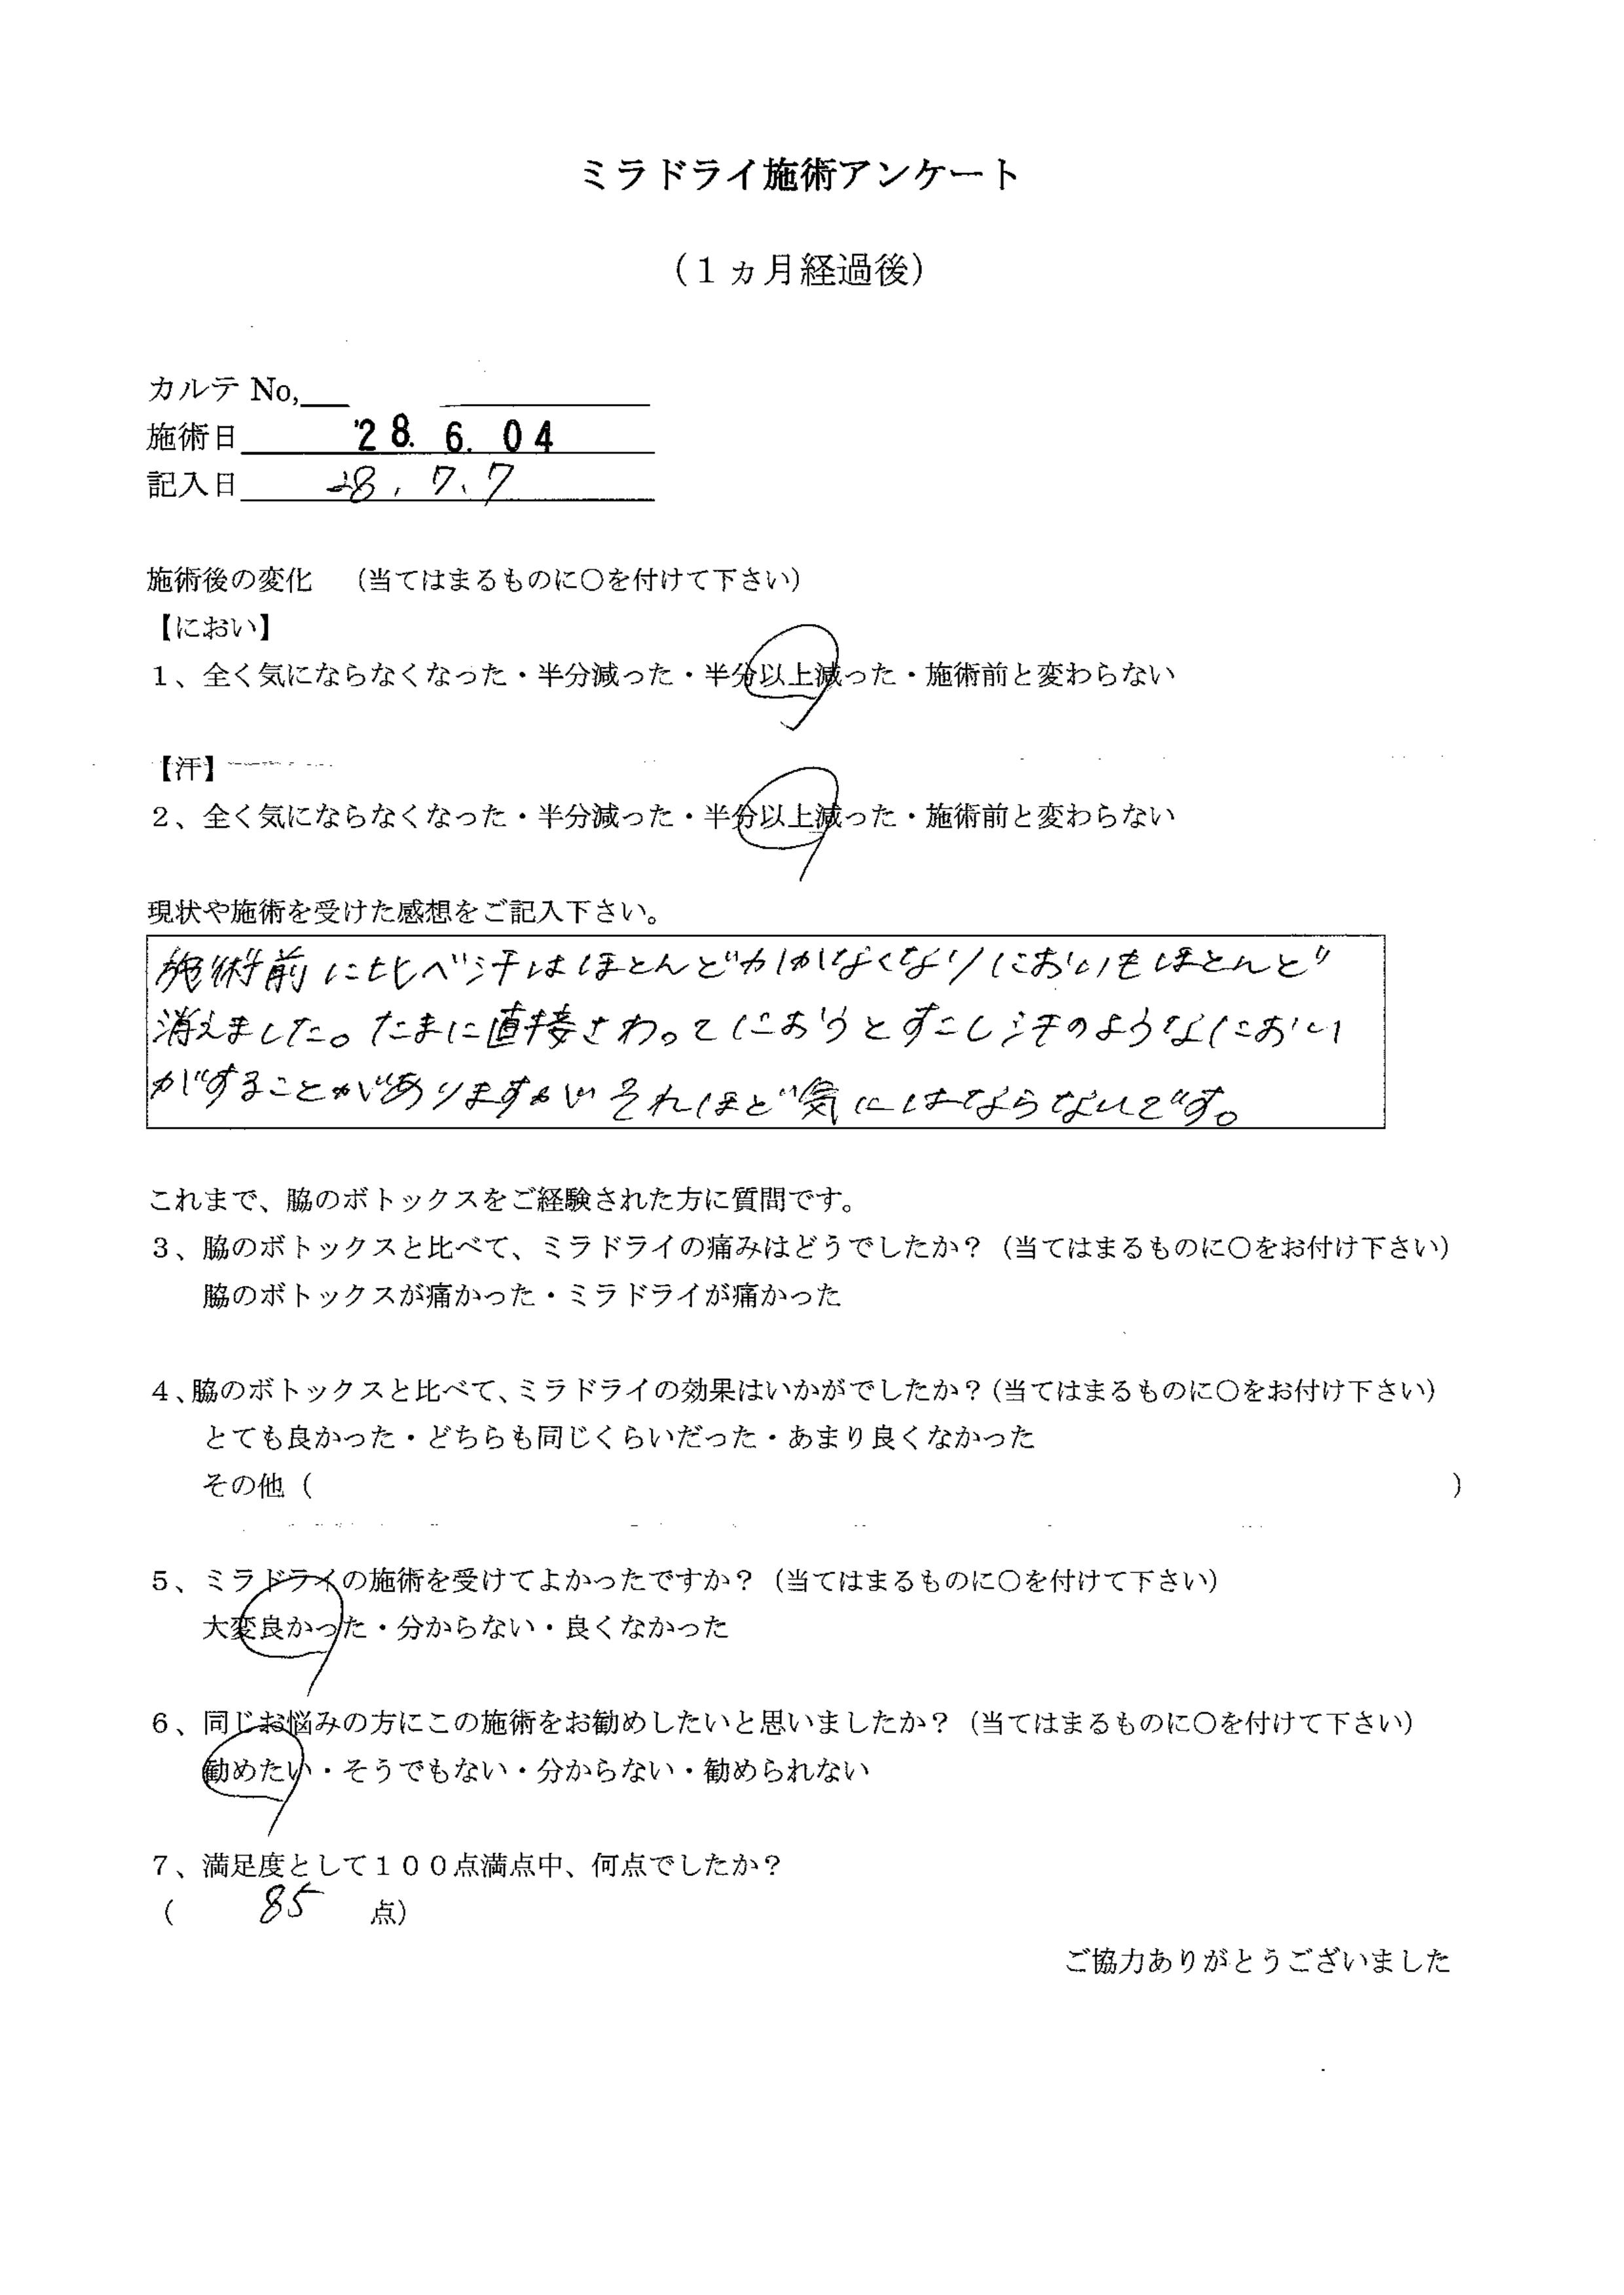 ミラドライ施術アンケート
（１ヵ月経過後）
カルテ No,
施術日 '28. 6. 04
記入日 28. 7. 7
施術後の変化　（当てはまるものに○を付けて下さい）
【におい】
１、全く気にならなくなった・半分減った・半分以上減った・施術前と変わらない
【汗】
２、全く気にならなくなった・半分減った・半分以上減った・施術前と変わらない
現状や施術を受けた感想をご記入下さい。
施術前に比べ汗はほとんどかかなくなりにおいもほとんど
消えました。たまに直接さわってにおうとすこし汗のようなにおい
がすることがありますがそれほど気にはならないです。
これまで、脇のボトックスをご経験された方に質問です。
３、脇のボトックスと比べて、ミラドライの痛みはどうでしたか？（当てはまるものに○をお付け下さい）
脇のボトックスが痛かった・ミラドライが痛かった
４、脇のボトックスと比べて、ミラドライの効果はいかがでしたか？（当てはまるものに○をお付け下さい）
とても良かった・どちらも同じくらいだった・あまり良くなかった
その他（　　　）
５、ミラドライの施術を受けてよかったですか？（当てはまるものに○を付けて下さい）
大変良かった・分からない・良くなかった
６、同じお悩みの方にこの施術をお勧めしたいと思いましたか？（当てはまるものに○を付けて下さい）
勧めたい・そうでもない・分からない・勧められない
７、満足度として１００点満点中、何点でしたか？
（　85　点）
ご協力ありがとうございました